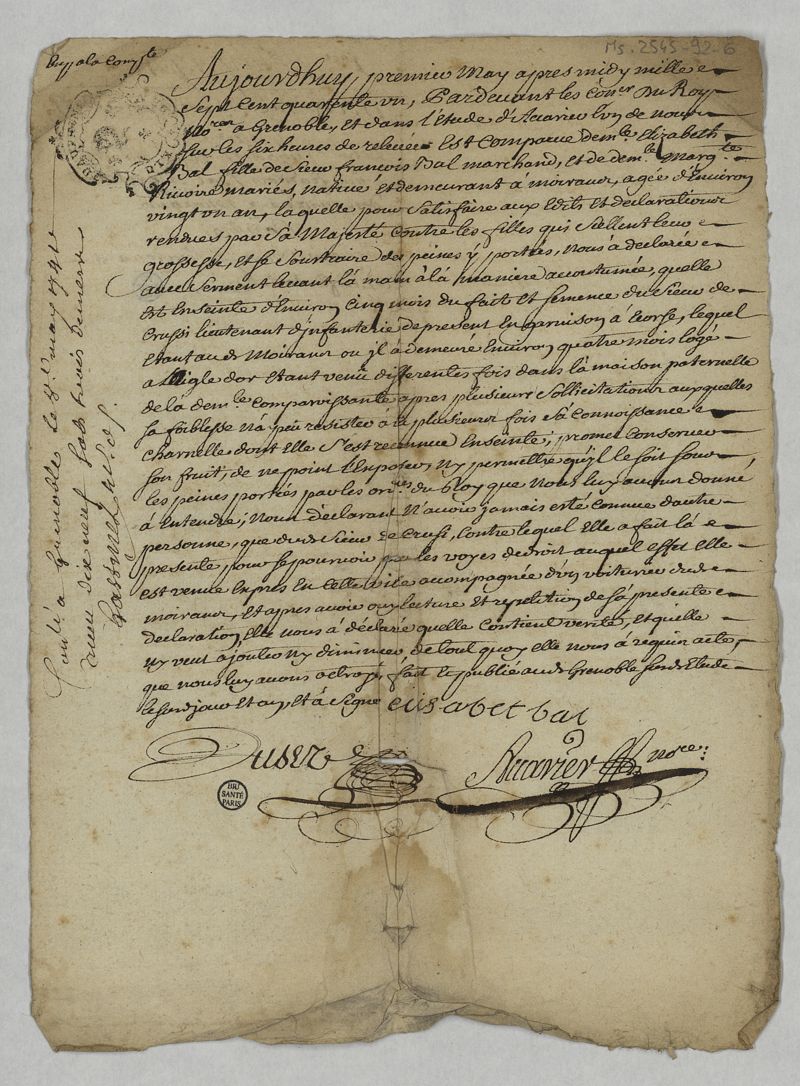 Ms. 2545-92-6
Aujourdhuy premier May apres midy mille
Sept Cent quarente un, Pardevant les Con.ers Du Roy
No.res a Grenoble, Et dans l'étude d'Accarier L'un de nous
sur les six heures de relevée Est Comparue dem.lle Elizabeth
Bal fille de Sieur françois Bal marchand, et de dem.lle Marg.te
Rivoire mariés, native Et demeurant à moirans, agée d'Environ
vingt un an, laquelle pour satisfaire aux Edits et déclarations
rendues par Sa Majesté Contre les filles qui scellent leur
grossesse, Et se Soustraire des peines y portées, Nous a déclarée
avec Serment levant la main à la maniere accoutumée, quelle
Est Enseinte d'Environ Cinq mois du fait et semence du Sieur de
Crussi lieutenant d'infanterie de present En garnison a, lequel
Etant aud. Moirans ou il a demeuré Environ quatre mois logé
a l'Aigle dor Etant venu differentes fois dans la maison paternelle
de la dem.lle Comparoissante apres plusieurs Sollicitations auxquelles
sa faiblesse n'a peu resister à la plusieurs fois sa Connoissance
Charnelle dont Elle s'est reconnue Enseinte; promet Conserver
son fruit, de ne point l'Exposer, ny permettre qu'il le soit sous
les peines portées par les or.ces du Roy que Nous luy avons donné
à Entendre; Nous declarant N'avoir jamais esté Connue d'autre
personne, que dud. Sieur de Crusi, Contre lequel Elle a fait la
presente pour se pourvoir par les voyes de droit auquel effet Elle
est venue Expres En Cette ville accompagnée d'un voiturier dud.
moirans, Et apres avoir ouy lecture Et repetition de sa presente
declaration Elle nous a déclaré quelle Contient verité, Et quelle
ny veut ajouter ny diminuer, de tout quoy elle nous a requis acte,
que nous luy avons octroyé, fait Et publié aud. Grenoble Susd. Etude
le susd. jour Et an, Et a Signé elisabet bal
Duser
Accarier
nore:
BIU
SANTÉ
PARIS
Con.lé a Grenoble le may 1741
dix neuf sols trois deniers